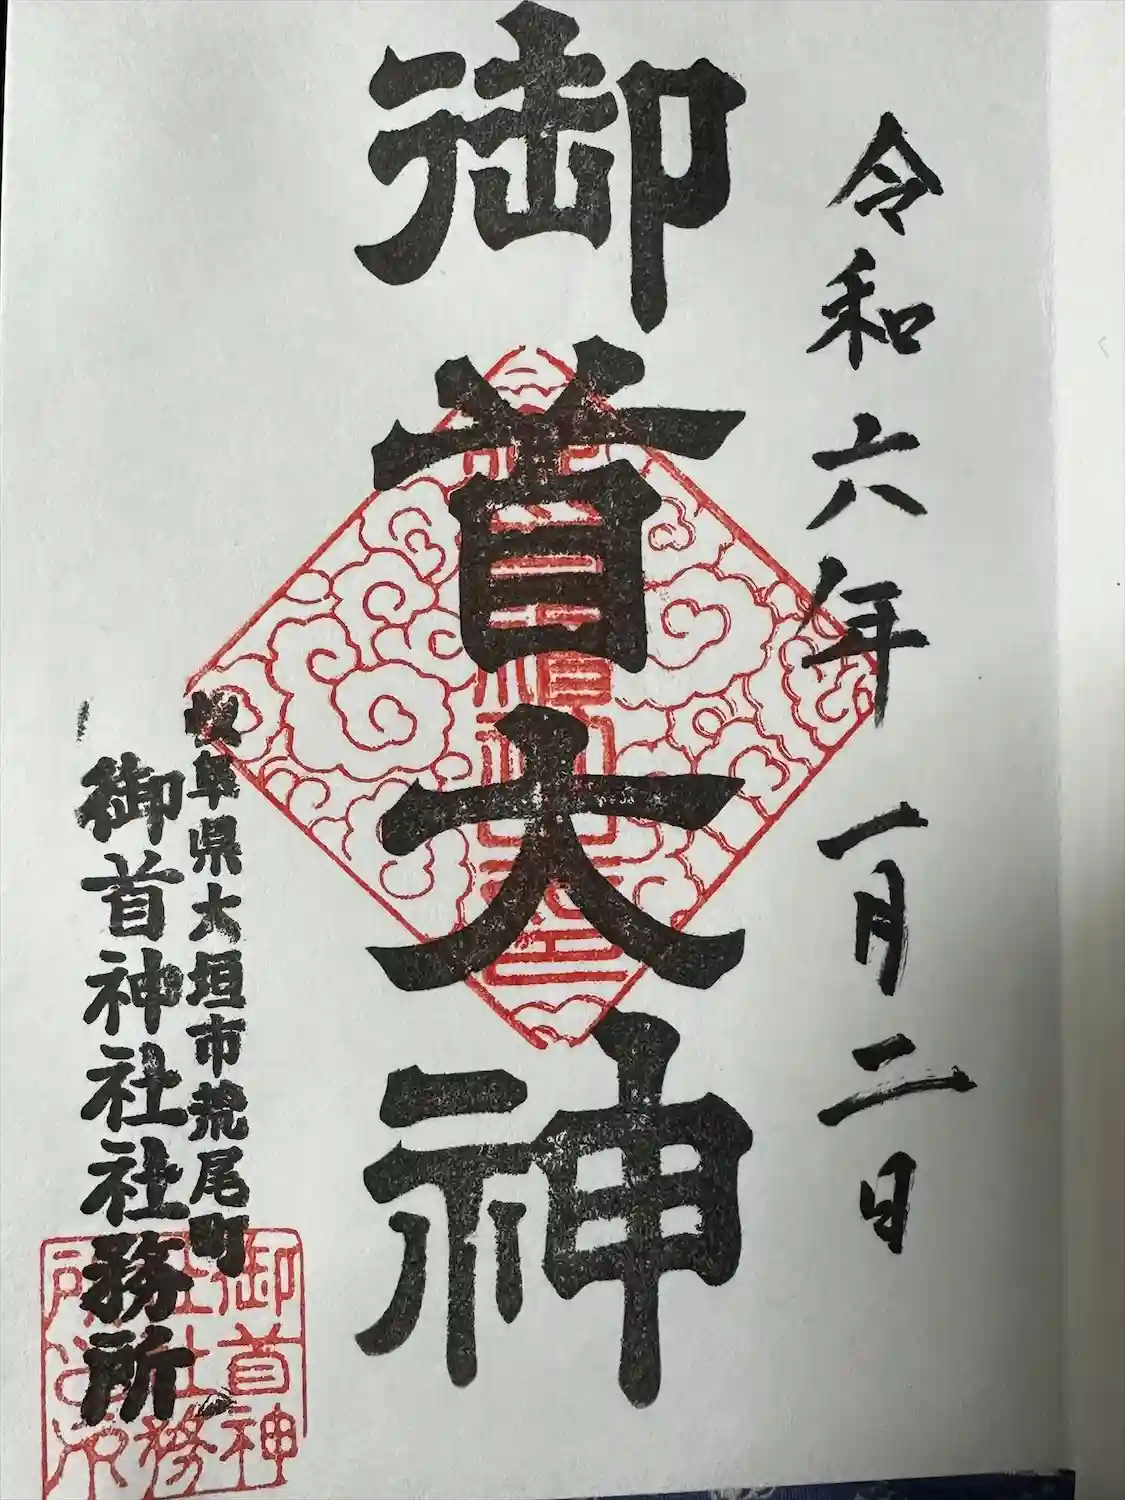 令和六年 一月二日
御首大神
岐阜県大垣市荒尾町
御首神社社務所
御首神
社社務
所